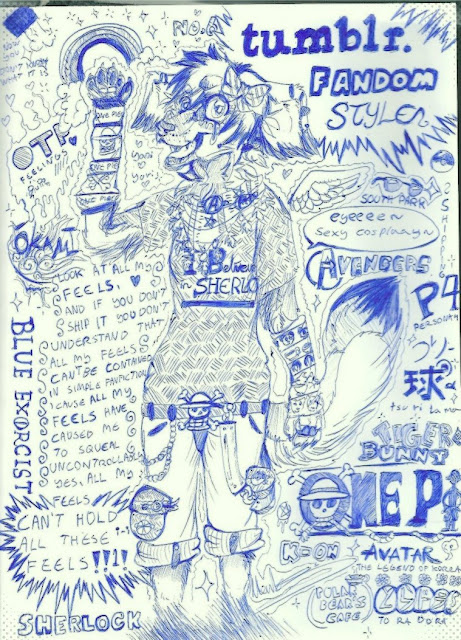 No. 6
tumblr.
FANDOM
STYLE
OTP
FEELINGS
ONE PIE
ONE PIE
ONE PIE
Yaoi
Yuri
SOUTH PARK
SHIPPING
eyeeeen
Sexy cosplaaayn
AVENGERS
ŌKAMI
I Believe
in SHERLO
LOOK AT ALL MY
FEELS.
AND IF YOU DON'T
SHIP IT YOU DON'T
UNDERSTAND THAT
ALL MY FEELS
CAN'T BE CONTAINED
IN SIMPLE FANFICTION
'CAUSE ALL MY
FEELS HAVE
CAUSED ME
TO SQUEAL
UNCONTROLLABLY
YES, ALL MY
FEELS
CAN'T HOLD
ALL THESE
FEELS!!!!
BLUE EXORCIST
SHERLOCK
P4
PERSONA 4
つり
球
tsuritama
TIGER &
BUNNY
ONE PI
K-ON
AVATAR
THE LEGEND OF KORRA
POLAR
BEAR'S
CAFE
TORADORA